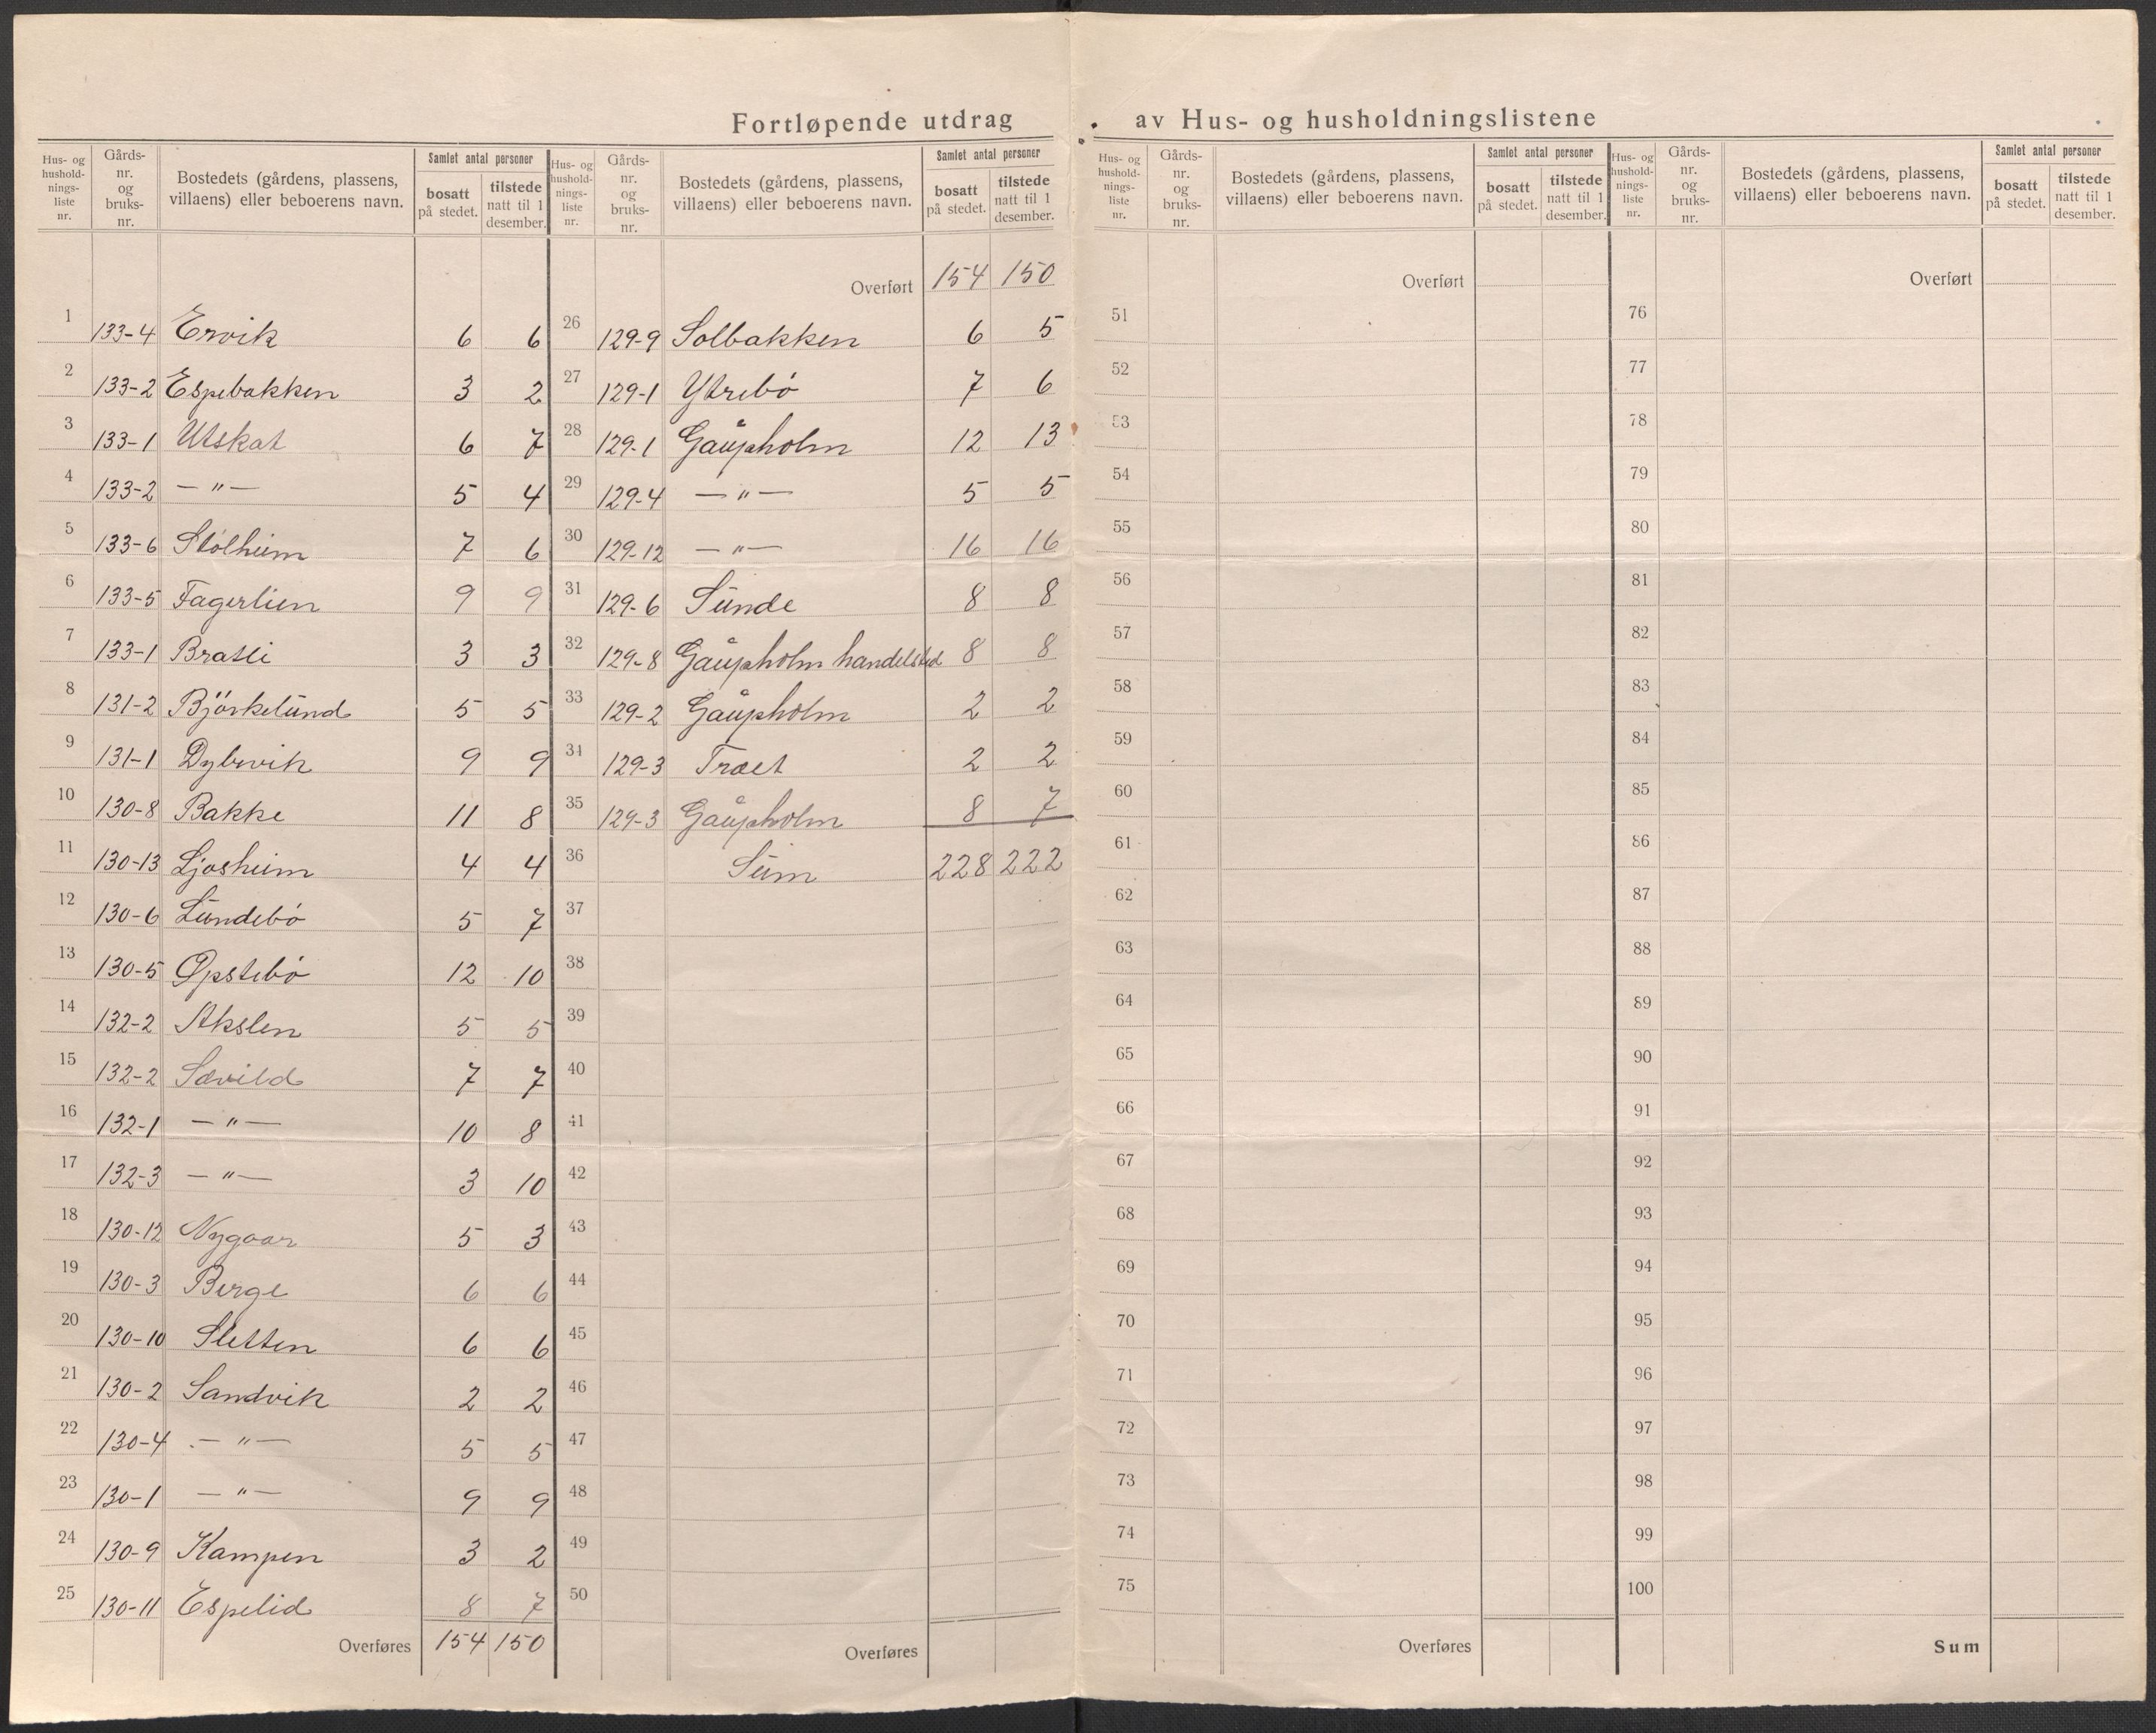 Fortløpende utdrag av Hus- og husholdningslistene
Hus- og hushold-nings-liste nr. Gårds-nr. og bruks-nr. Bostedets (gårdens, plassens, villaens) eller beboerens navn. Samlet antal personer bosatt på stedet. tilstede natt til 1 desember.
1 133-4 Ervik 6 6
2 133-2 Espebakken 3 2
3 133-1 Utskat 6 7
4 133-2 —"— 5 4
5 133-6 Stølheim 7 6
6 133-5 Fagerlien 9 9
7 133-1 Bratli 3 3
8 131-2 Björkelund 5 5
9 131-1 Dybvik 9 9
10 130-8 Bakke 11 8
11 130-13 Ljosheim 4 4
12 130-6 Lundebö 5 7
13 130-5 Opstebö 12 10
14 132-2 Akslen 5 5
15 132-2 Sævild 7 7
16 132-1 —"— 10 8
17 132-3 —"— 3 10
18 130-12 Nygaar 5 3
19 130-3 Berge 6 6
20 130-10 Sletten 6 6
21 130-2 Sandvik 2 2
22 130-4 —"— 5 5
23 130-1 —"— 9 9
24 130-9 Kampen 3 2
25 130-11 Espelid 8 7
Overføres 154 150
Hus- og hushold-nings-liste nr. Gårds-nr. og bruks-nr. Bostedets (gårdens, plassens, villaens) eller beboerens navn. Samlet antal personer bosatt på stedet. tilstede natt til 1 desember.
Overført 154 150
26 129-9 Solbakken 6 5
27 129-1 Ytrebö 7 6
28 129-1 Gåupholm 12 13
29 129-4 —"— 5 5
30 129-12 —"— 16 16
31 129-6 Sunde 8 8
32 129-8 Gåupholm handelsted 8 8
33 129-2 Gåupholm 2 2
34 129-3 Træet 2 2
35 129-3 Gåupholm 8 7
36 Sum 228 222
37
38
39
40
41
42
43
44
45
46
47
48
49
50
Overføres
Hus- og hushold-nings-liste nr. Gårds-nr. og bruks-nr. Bostedets (gårdens, plassens, villaens) eller beboerens navn. Samlet antal personer bosatt på stedet. tilstede natt til 1 desember.
Overført
51
52
53
54
55
56
57
58
59
60
61
62
63
64
65
66
67
68
69
70
71
72
73
74
75
Overføres
Hus- og hushold-nings-liste nr. Gårds-nr. og bruks-nr. Bostedets (gårdens, plassens, villaens) eller beboerens navn. Samlet antal personer bosatt på stedet. tilstede natt til 1 desember.
Overført
76
77
78
79
80
81
82
83
84
85
86
87
88
89
90
91
92
93
94
95
96
97
98
99
100
Sum